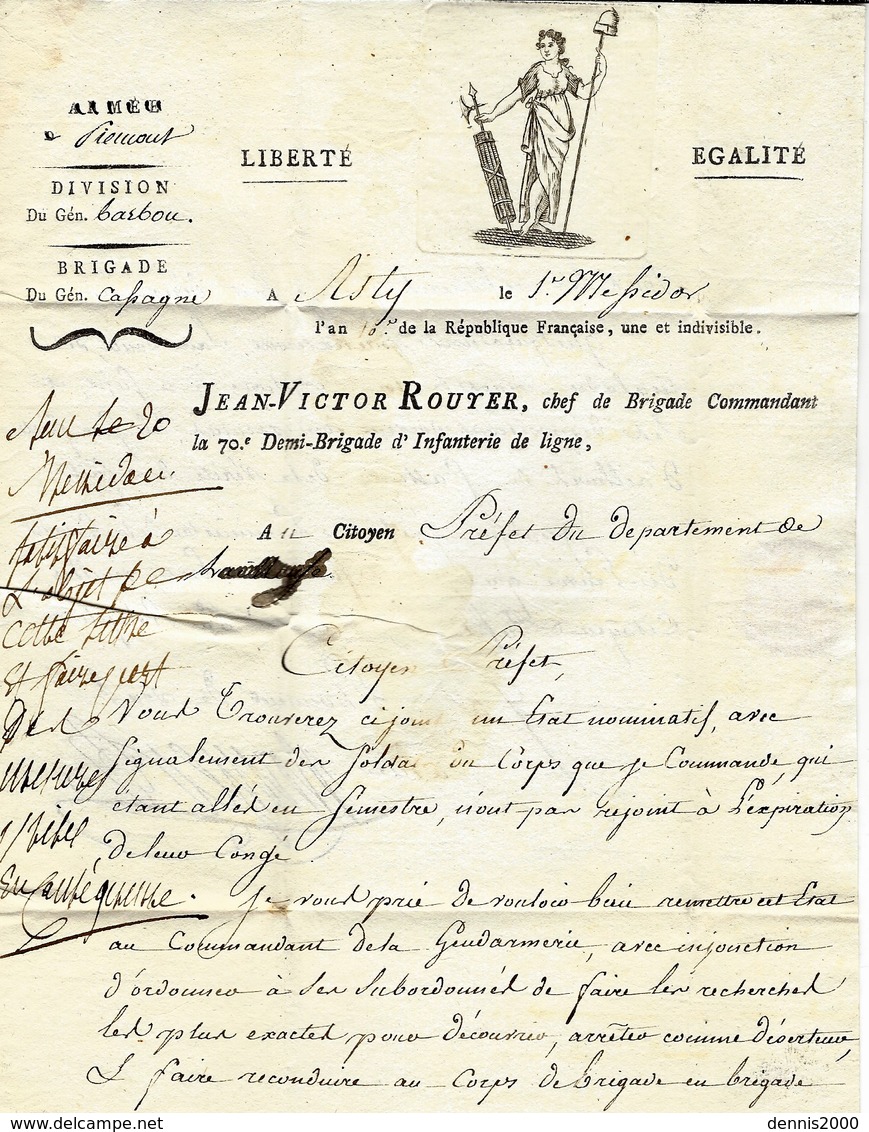 ARMÉE
de Piemont
DIVISION
Du Gén. Barbou.
BRIGADE
Du Gén. Cassagne
LIBERTÉ
EGALITÉ
A Asty le 1.er Messidor
l'an 10.e de la République Française, une et indivisible.
JEAN-VICTOR ROUYER, chef de Brigade Commandant
la 70.e Demi-Brigade d'Infanterie de ligne,
Au Citoyen Préfet du departement de
Citoyen Préfet,
Vous trouverez cijoint un Etat nominatif, avec
Signalement des Soldats du Corps que je Commande, qui
étant allés en Semestre, n'ont pas rejoint à l'expiration
de leur Congé.
Je vous prie de vouloir bien remettre cet Etat
au Commandant de la Gendarmerie, avec injonction
d'ordonner à ses Subordonnés de faire les recherches
les plus exactes pour découvrir, arrêter comme déserteurs,
& faire reconduire au Corps de brigade en brigade
le 20
Messidor
satisfaire à
L'objet de
cette lettre
Et faire part
Des
mesures
prises
En Conséquence.
dennis2000